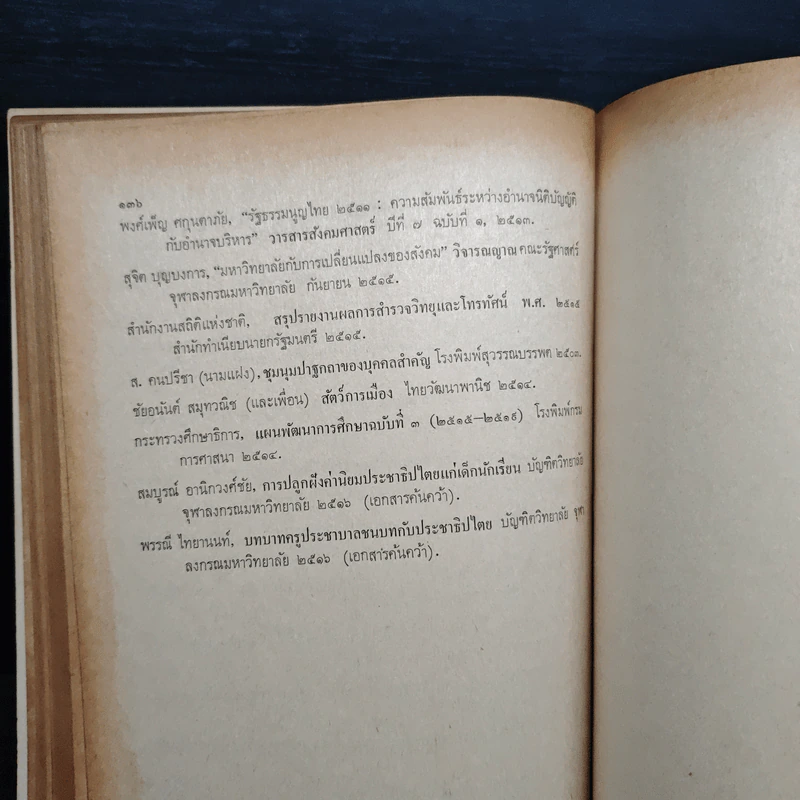 ๑๓๖
พงศ์เพ็ญ ศกุนตาภัย, "รัฐธรรมนูญไทย ๒๕๑๑ : ความสัมพันธ์ระหว่างอำนาจนิติบัญญัติ
กับอำนาจบริหาร" วารสารสังคมศาสตร์ ปีที่ ๗ ฉบับที่ ๑, ๒๕๑๓.
สุจิต บุญบงการ, "มหาวิทยาลัยกับการเปลี่ยนแปลงของสังคม" วิจารณญาณ คณะรัฐศาสตร์
จุฬาลงกรณมหาวิทยาลัย กันยายน ๒๕๑๕.
สำนักงานสถิติแห่งชาติ, สรุปรายงานผลการสำรวจวิทยุและโทรทัศน์ พ.ศ. ๒๕๑๕
สำนักทำเนียบนายกรัฐมนตรี ๒๕๑๕.
ส. คนปรีชา (นามแฝง), ชุมนุมปาฐกถาของบุคคลสำคัญ โรงพิมพ์สุวรรณบรรพต ๒๕๐๓.
ชัยอนันต์ สมุทวณิช (และเพื่อน) สัตว์การเมือง ไทยวัฒนาพานิช ๒๕๑๔.
กระทรวงศึกษาธิการ, แผนพัฒนาการศึกษาฉบับที่ ๓ (๒๕๑๕—๒๕๑๙) โรงพิมพ์กรม
การศาสนา ๒๕๑๔.
สมบูรณ์ อานิกวงศ์ชัย, การปลูกฝังค่านิยมประชาธิปไตยแก่เด็กนักเรียน บัณฑิตวิทยาลัย
จุฬาลงกรณมหาวิทยาลัย ๒๕๑๖ (เอกสารค้นคว้า).
พรรณี ไทยานนท์, บทบาทครูประชาบาลชนบทกับประชาธิปไตย บัณฑิตวิทยาลัย จุฬา
ลงกรณมหาวิทยาลัย ๒๕๑๖ (เอกสารค้นคว้า).